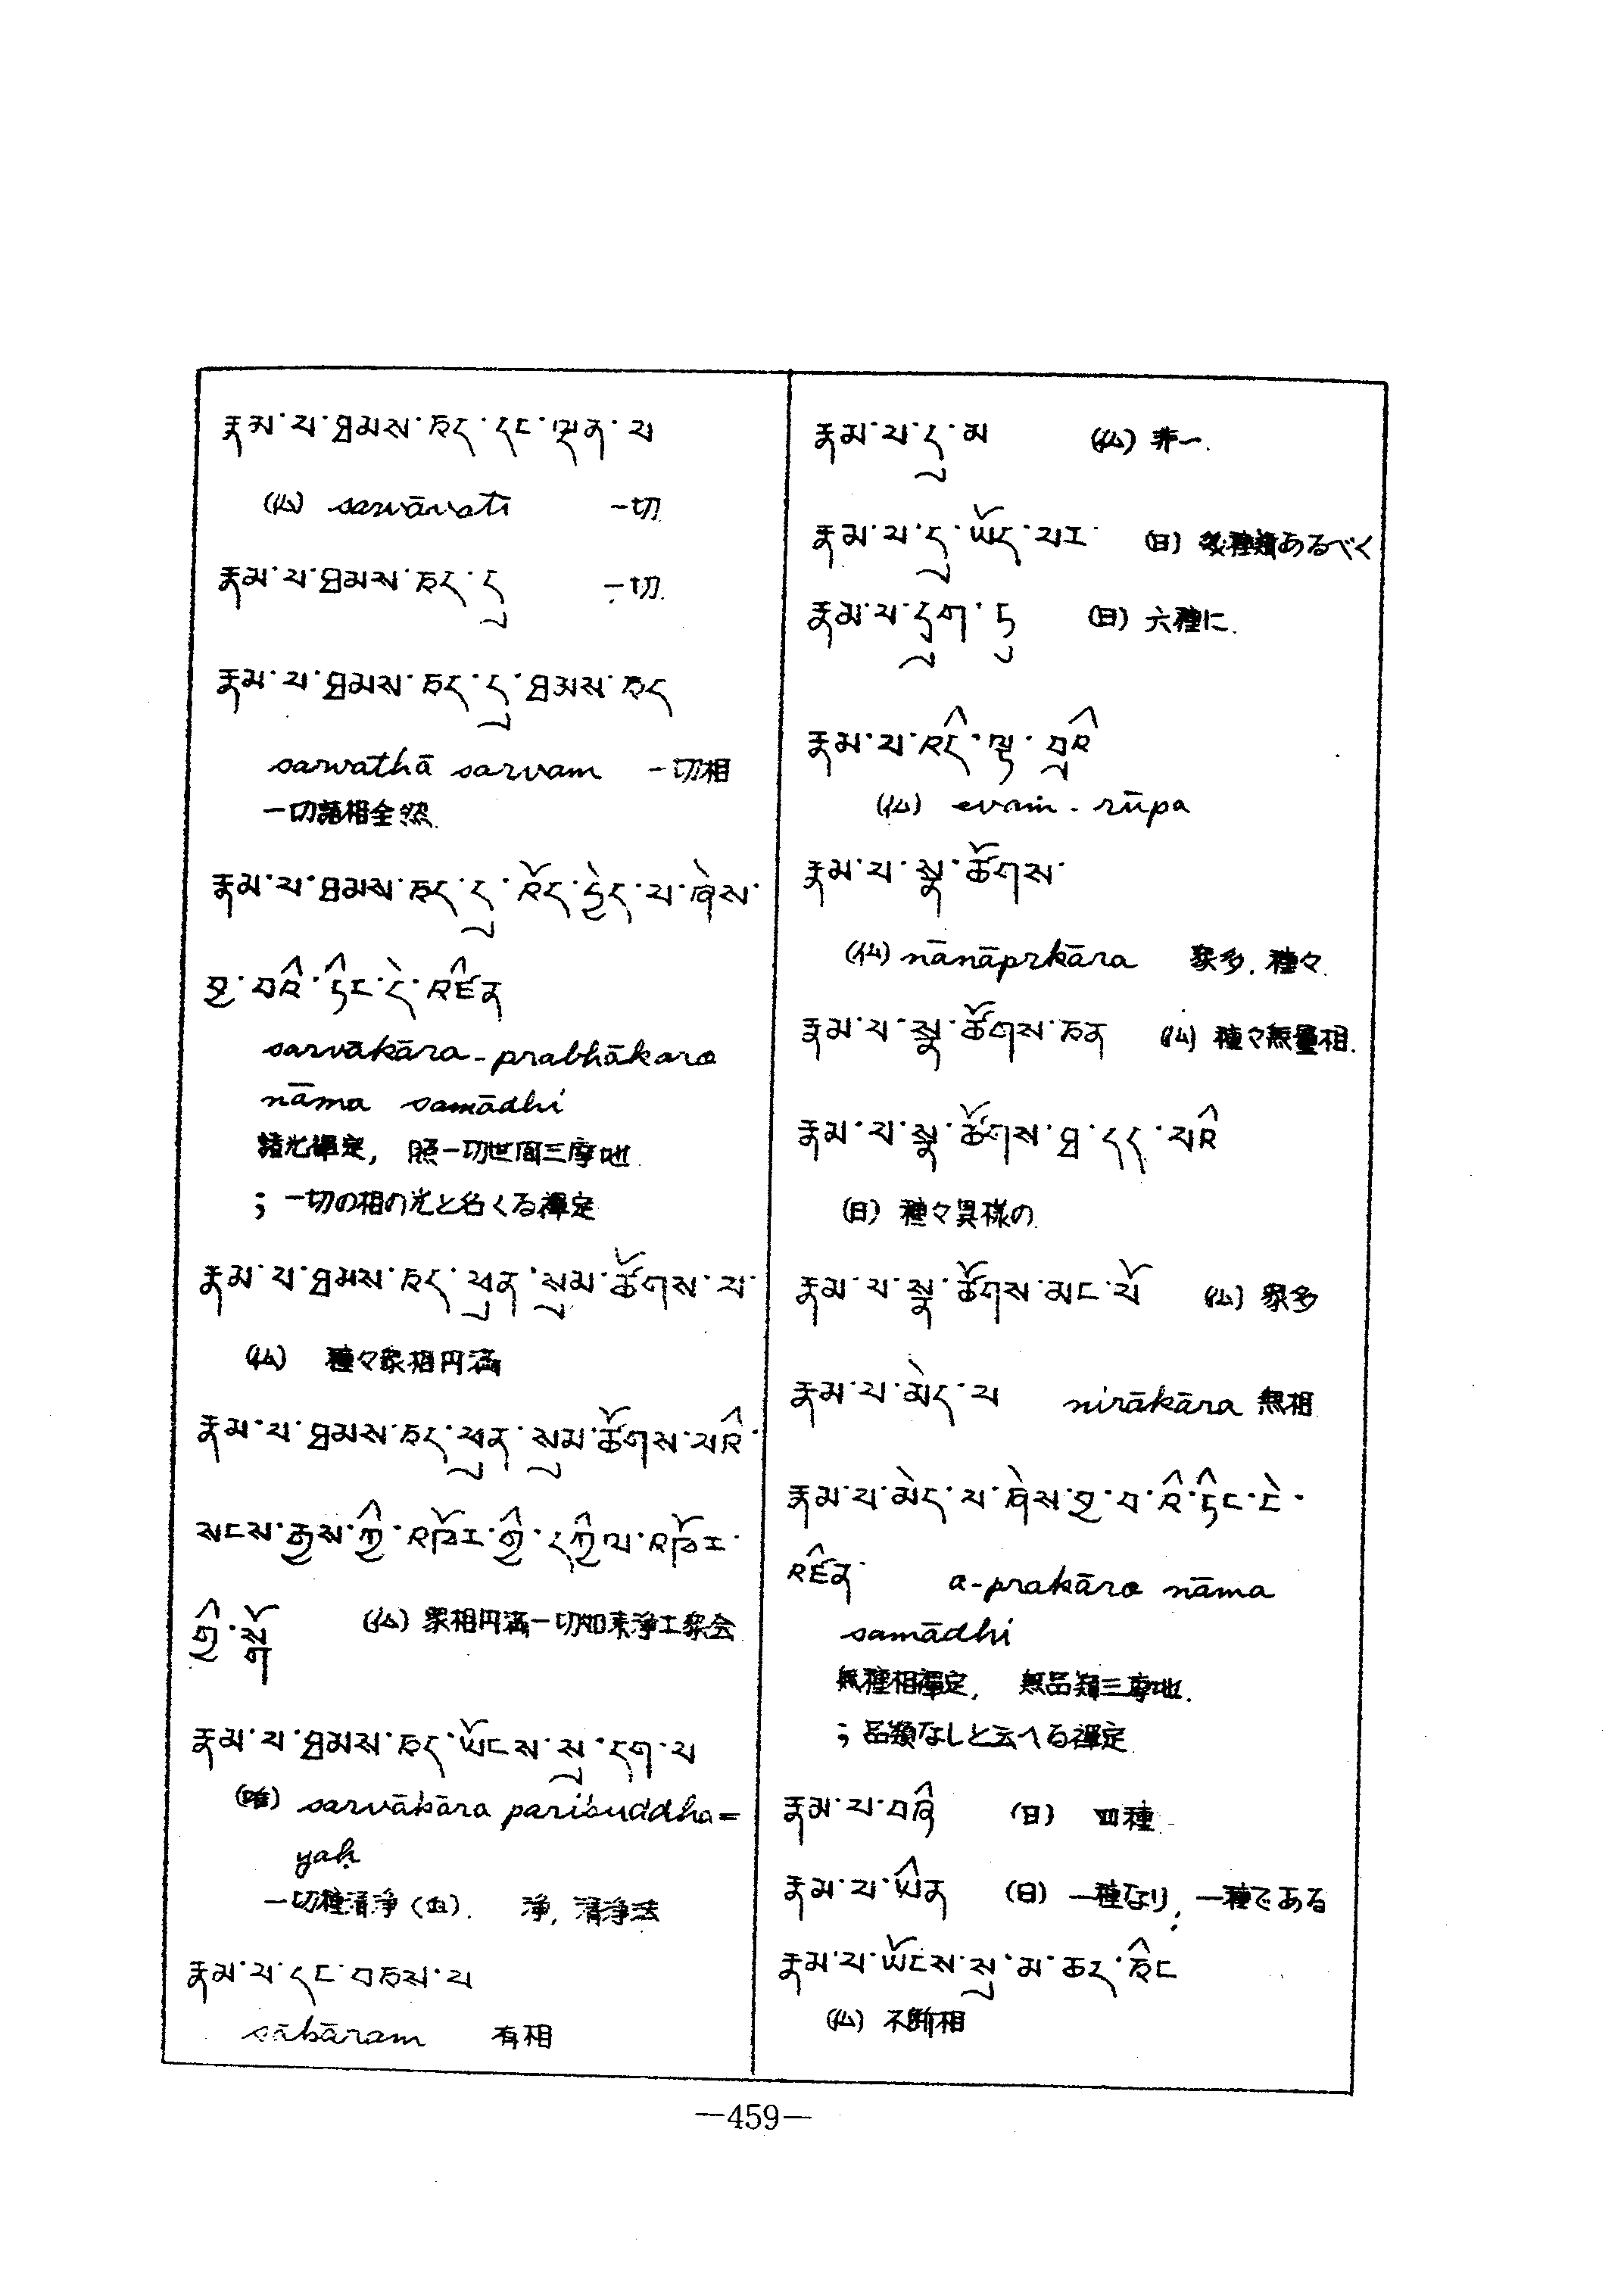 རྣམ་པ་ཐམས་ཅད་དང་ལྡན་པ
(仏) sarvāvatī 一切
རྣམ་པ་ཐམས་ཅད་དུ 一切.
རྣམ་པ་ཐམས་ཅད་དུ་ཐམས་ཅད
sarvathā sarvam 一切相
一切諸相全然.
རྣམ་པ་ཐམས་ཅད་དུ་འོད་བྱེད་པ་ཞེས་
བྱ་བའི་ཏིང་ངེ་འཛིན
sarvākāra-prabhākaro
nāma samādhi
諸光禅定, 照一切世間三摩地.
; 一切の相の光と名くる禅定
རྣམ་པ་ཐམས་ཅད་ཕུན་སུམ་ཚོགས་པ་
(仏) 種々衆相円満
རྣམ་པ་ཐམས་ཅད་ཕུན་སུམ་ཚོགས་པའི་
སངས་རྒྱས་ཀྱི་འཁོར་གྱི་དཀྱིལ་འཁོར་
གྱི་སྒོ (仏) 衆相円満一切如来浄工衆会
རྣམ་པ་ཐམས་ཅད་ཡོངས་སུ་དག་པ
sarvākāra pariśuddha=
yaḥ
一切種清浄 浄, 清浄法
རྣམ་པ་དང་བཅས་པ
sākāram 有相
རྣམ་པ་དུ་མ (仏) 非一.
རྣམ་པ་དུ་ཡོད་པར་ (日) 多種類あるべく
རྣམ་པ་དྲུག་ཏུ (日) 六種に.
རྣམ་པ་འདི་ལྟ་བུའི
(仏) evaṁ-rūpa
རྣམ་པ་སྣ་ཚོགས་
(仏) nānāprkāra 衆多, 種々.
རྣམ་པ་སྣ་ཚོགས་ཅན (仏) 種々無量相.
རྣམ་པ་སྣ་ཚོགས་ཐ་དད་པའི
(日) 種々異様の
རྣམ་པ་སྣ་ཚོགས་མང་པོ (仏) 衆多
རྣམ་པ་མེད་པ nirākāra 無相
རྣམ་པ་མེད་པ་ཞེས་བྱ་བའི་ཏིང་ངེ་
འཛིན་ a-prakāro nāma
samādhi
無種相禅定, 無品類三摩地.
; 品類なしと云へる禅定
རྣམ་པ་བཞི (日) 四種
རྣམ་པ་ཡིན (日) 一種なり, 一種である
རྣམ་པ་ཡོངས་སུ་མ་ཆད་ཅིང
(仏) 不断相
—459—